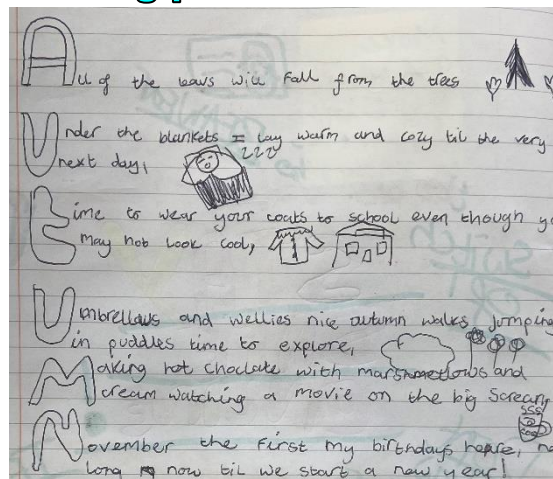 All of the leavs will fall from the trees
Under the blankets I lay warm and cozy til the very
next day,
zzzz
time to wear your coats to school even though
may not look cool,
Umbrellaus and wellies nice autumn walks jumping
in puddles time to explore,
Making hot choclate with marshmellows and
cream watching a movie on the big screan,
November the first my birthdays heare,
long now til we start a new year!